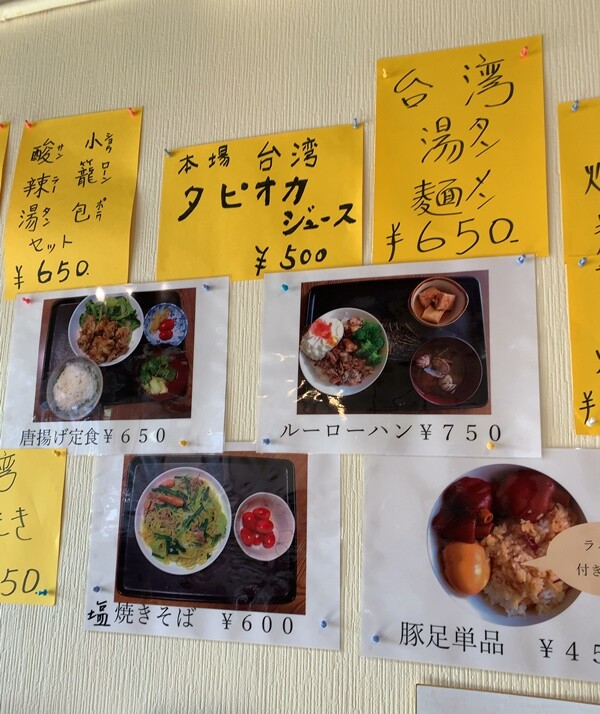 小籠包
ショウローンポウ
酸辣湯
サンラータン
セット
¥650.
本場 台湾
タピオカ
ジュース
¥500
台湾
湯麺
タンメン
¥650-
唐揚げ定食¥650
ルーローハン¥750
湾
き
50
塩焼きそば ¥600
豚足単品 ¥45
ラ
付き